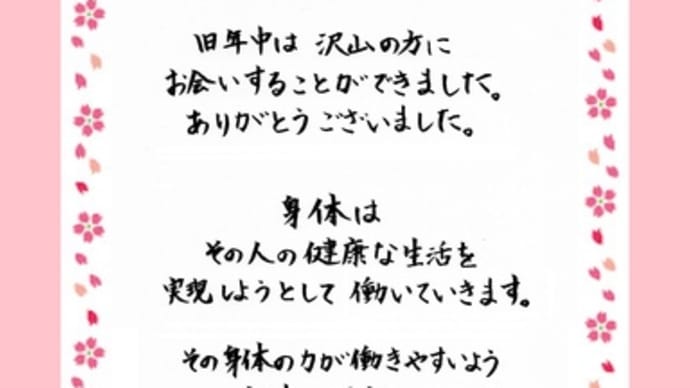 旧年中は 沢山の方に
お会いすることができました。
ありがとうございました。
身体は
その人の健康な生活を
実現しようとして 働いていきます。
その身体の力が働きやすいよう